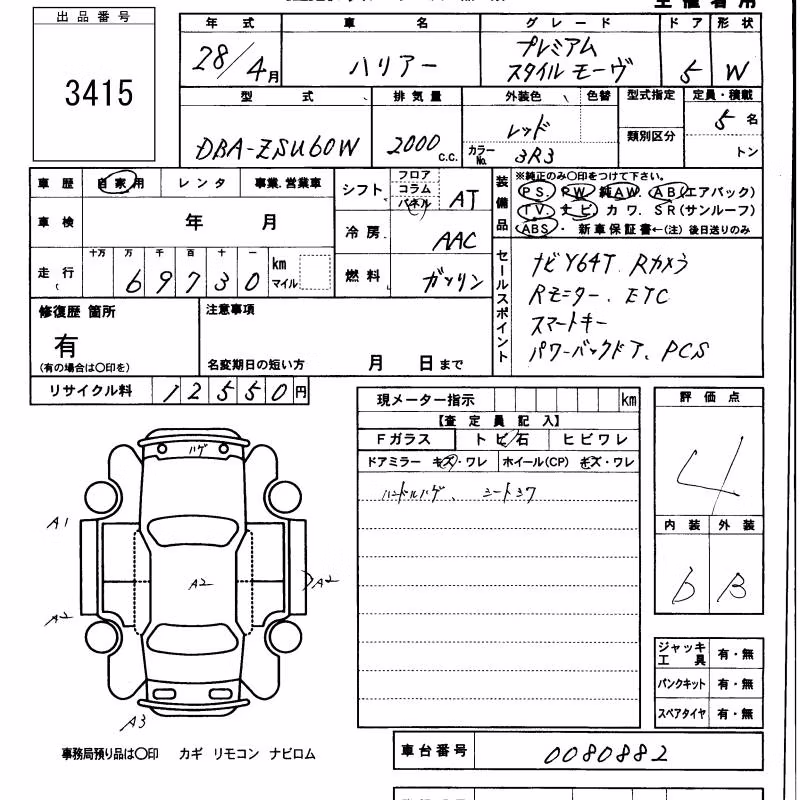 出品番号
3415
年式 車名 グレード ドア 形状
28/4月 ハリアー プレミアム スタイルモーヴ 5 W
型式 排気量 外装色 色替 型式指定 定員・積載
DBA-ZSU60W 2000 c.c. レッド 類別区分 5名
カラーNo. 3R3 トン
車歴 自家用 レンタ 事業.営業車
車検 年 月
走行 十万 万 千 百 十 一
69730 km マイル
シフト フロア コラム パネル AT
冷房 AAC
燃料 ガソリン
装備品 ※純正のみ〇印をつけて下さい。
PS. PW. 純AW. AB(エアバック)
TV. ナビ. カワ. SR(サンルーフ)
ABS・ 新車保証書←(注) 後日送りのみ
セールスポイント
ナビY64T. Rカメラ
Rモニター. ETC
スマートキー
パワーバックドア、PCS
修復歴 箇所
有
(有の場合は〇印を)
注意事項
名変期日の短い方 月 日まで
リサイクル料 12550円
現メーター指示 km
【査定員記入】
Fガラス トビ石 ヒビワレ
ドアミラー キズ・ワレ ホイール(CP) キズ・ワレ
ハンドルハゲ、 シートシワ
評価点
4
内装 外装
b B
ハゲ
A1
A2
A2
A2
A3
ジャッキ工具 有・無
パンクキット 有・無
スペアタイヤ 有・無
事務局預り品は〇印 カギ リモコン ナビロム
車台番号 0080882